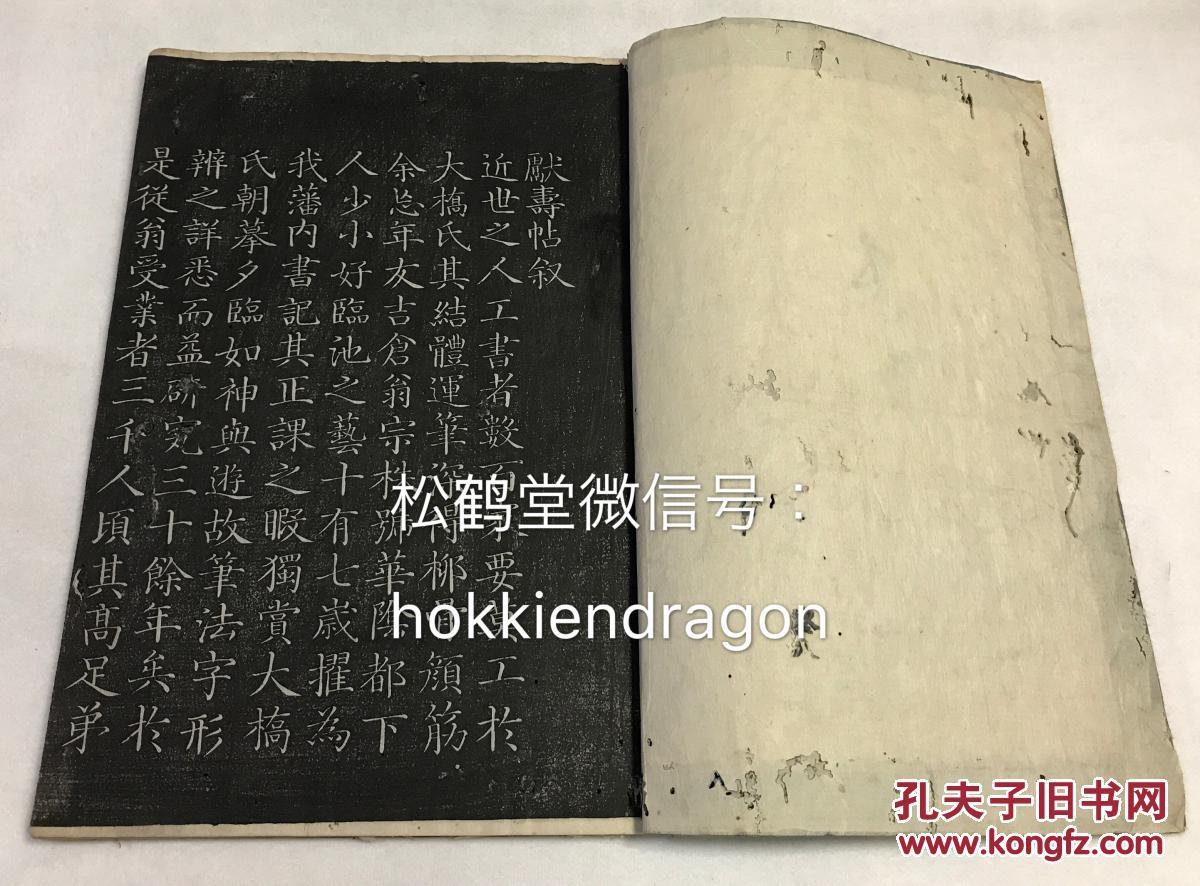 獻壽帖叙
近世之人工書者數百 要 工於
大橋氏其結體運筆深得柳骨顔筋
余忘年友吉倉翁宗株號華陰都下
人少小好臨池之藝十有七歲擢為
我藩内書記其正課之暇獨賞大橋
氏朝摹夕臨如神與遊故筆法字形
辨之詳悉而益研究三十餘年矣於
是從翁受業者三千人頃其高足弟
松鹤堂微信号：
hokkiendragon
孔夫子旧书网
www.kongfz.com